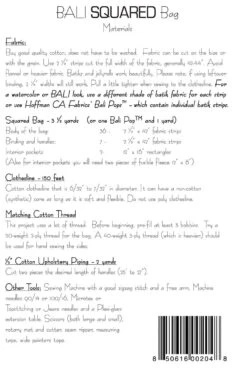 BALI SQUARED Bag
Materials
Fabric:
Buy good quality cotton, does not have to be washed. Fabric can be cut on the bias or
with the grain. Use 1 ⅞" strips cut the full width of the fabric, generally 42-44". Avoid
flannel or heavier fabric. Batiks and plurals work beautifully. Please note, if using leftover
binding, 2 ½" widths will still work. Pull a little tighter when sewing to the clothesline. For
a watercolor or BALI look, use a different shade of batik fabric for each strip
or use Hoffman CA Fabrics' Bali Pops™ - which contain individual batik strips.
Squared Bag - 3 ½ yards (or one Bali Pop™ and 1 yard)
Body of the bag: 36 - 1 ⅞" x 42" fabric strips
Binding and handles: 7 - 2 ½" x 42" fabric strips
Interior pockets: 3 - 12" x 18" rectangles
(Also for interior pockets you will need two pieces of fusible fleece 12" x 8")
Clothesline - 150 feet
Cotton clothesline that is 6/32" to 7/32" in diameter. It can have a non-cotton
(synthetic) core as long as it is soft and flexible. Do not use poly clothesline.
Matching Cotton Thread
This project uses a lot of thread. Before beginning, pre-fill at least 3 bobbins. Try a
50-weight 3-ply thread for the bag. A 40-weight 3-ply thread (which is heavier) should
be used for hand sewing the sides.
½" Cotton Upholstery Piping - 2 yards
Cut two pieces the desired length of handles (25" to 27").
Other Tools: Sewing Machine with a good zigzag stitch and a free arm, Machine
needles 90/14 or 100/16, Microtex or
Topstitching or Jeans needles and a Plexiglas
extension table, Scissors (both large and small),
rotary mat and cutter, seam ripper, measuring
tape, wide painters tape.
8 50616 00204 8